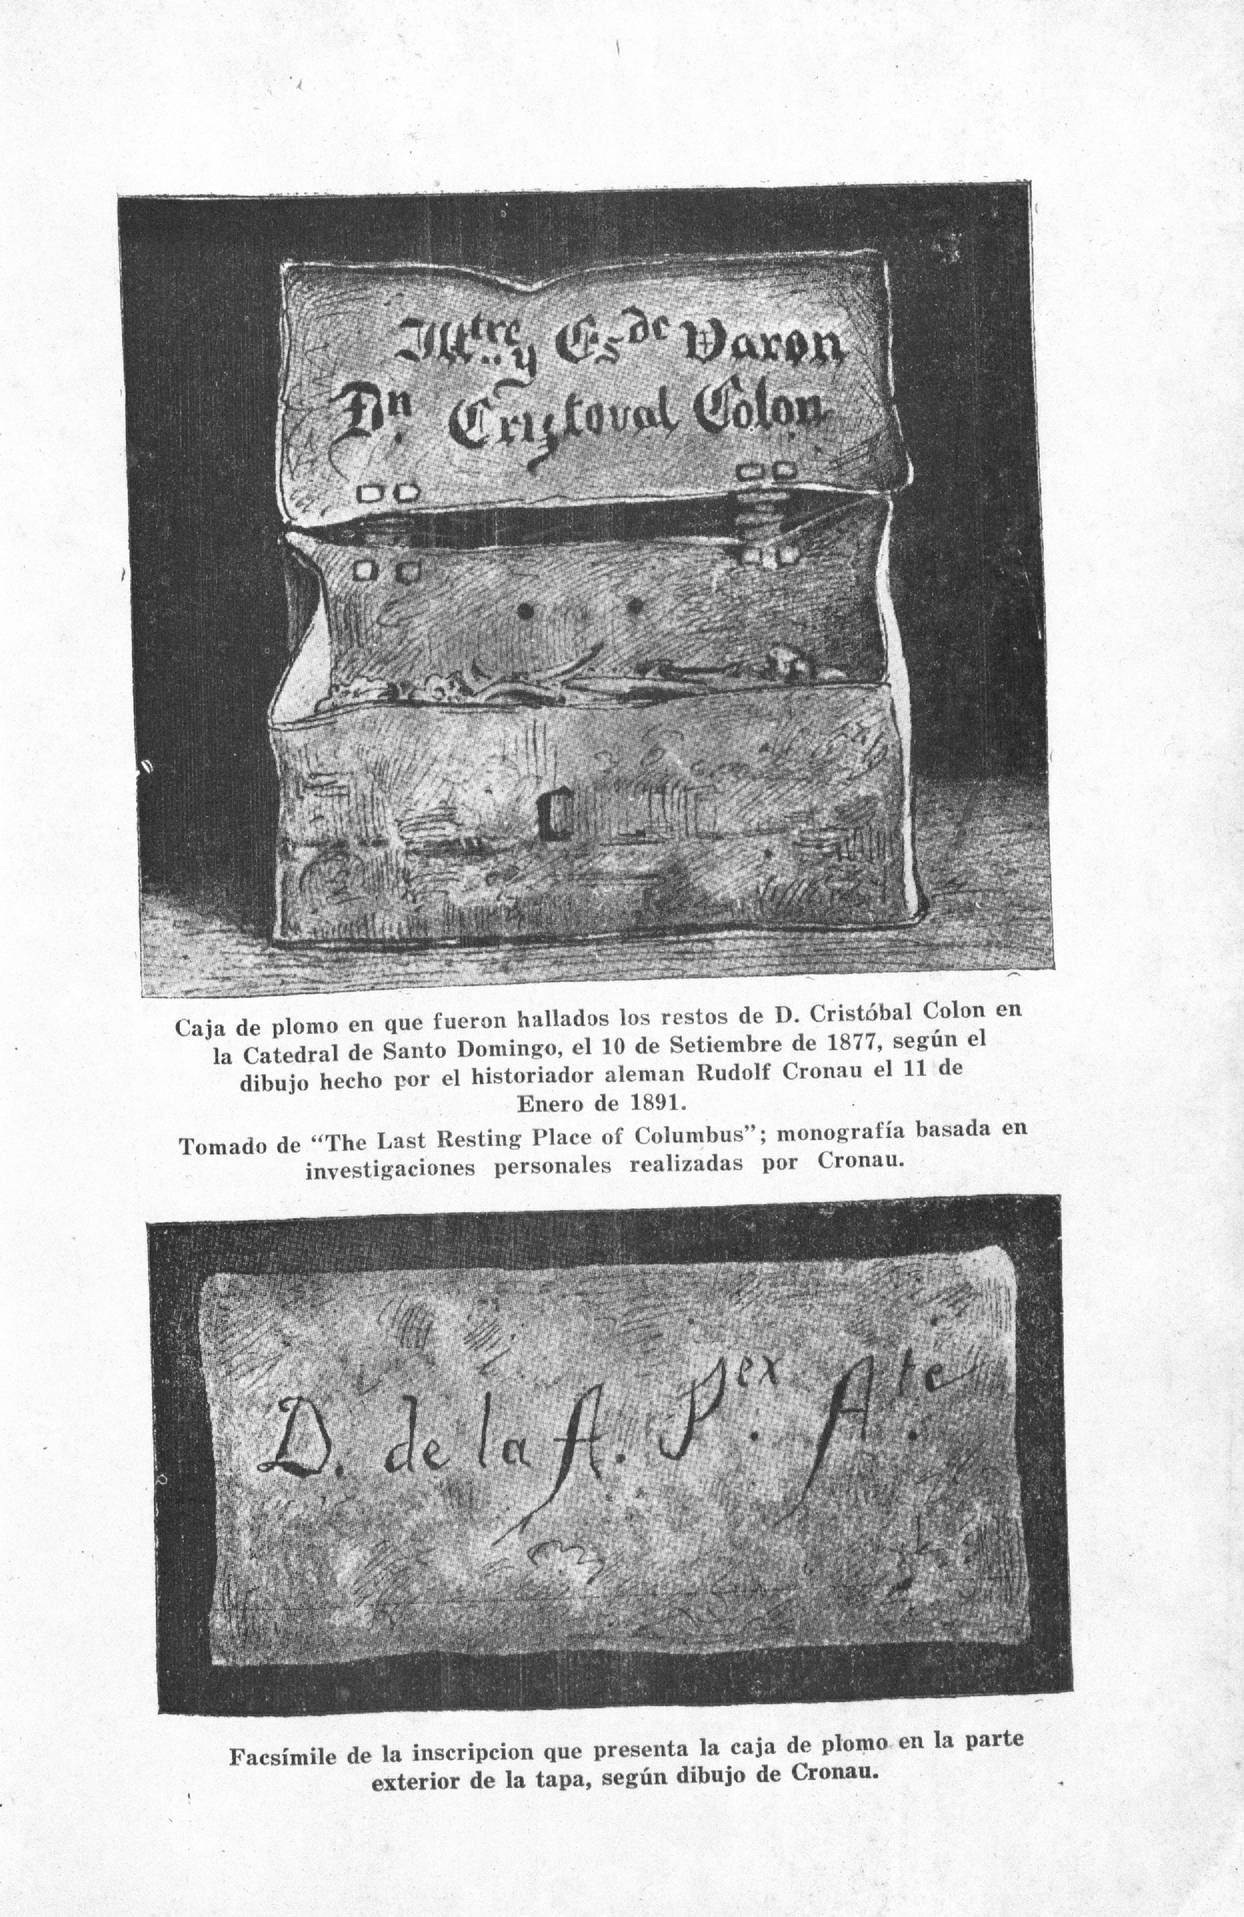 Illtre y Esde Varon
Dn. Criztoval Colon
Caja de plomo en que fueron hallados los restos de D. Cristóbal Colon en
la Catedral de Santo Domingo, el 10 de Setiembre de 1877, según el
dibujo hecho por el historiador aleman Rudolf Cronau el 11 de
Enero de 1891.
Tomado de “The Last Resting Place of Columbus”; monografía basada en
investigaciones personales realizadas por Cronau.
D. de la A. Pex. Ate.
Facsímile de la inscripcion que presenta la caja de plomo en la parte
exterior de la tapa, según dibujo de Cronau.